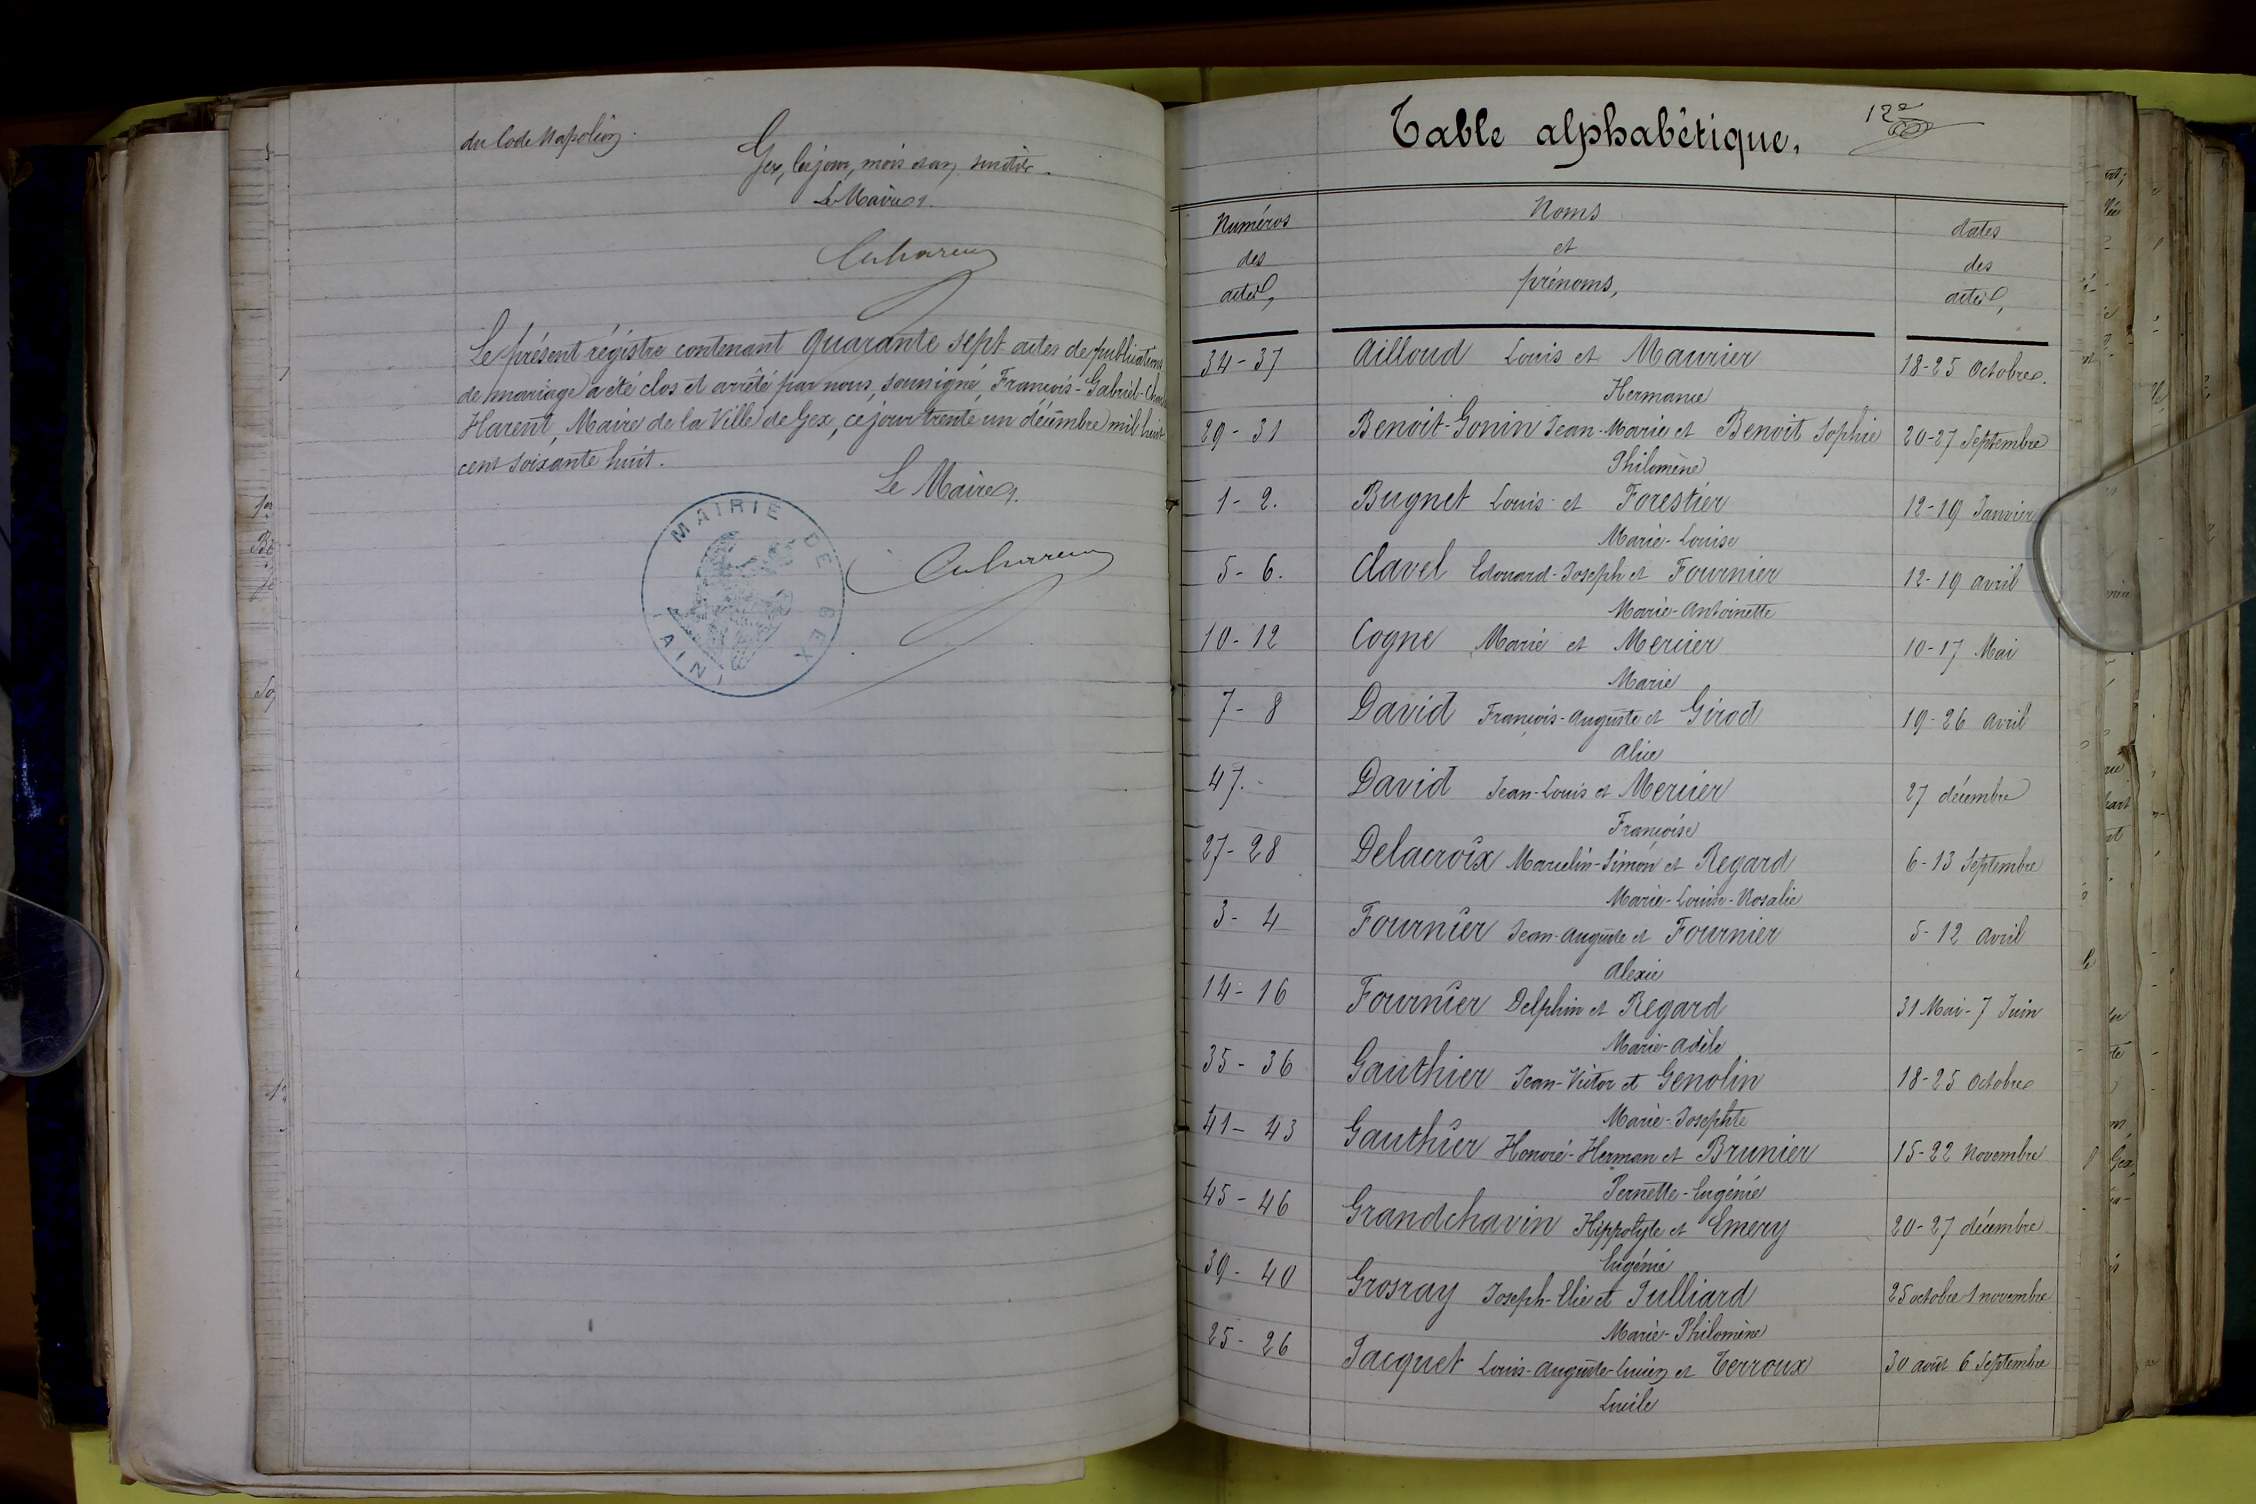 du Code Napoléon.
Gex, les jour, mois et an, susdits.
Le Maire,
Le présent régistre contenant quarante sept actes de publications
de mariage a été clos et arrêté par nous, soussigné, François-Gabriel-
Harent, Maire de la Ville de Gex, ce jour trente un décembre mil huit
cent soixante huit.
Le Maire,
MAIRIE DE GEX
(AIN)
Table alphabétique,
12e
Numéros
des
actes,
Noms
et
prénoms,
dates
des
actes,
34-37 Ailloud Louis et Maurier 18-25 Octobre.
Hermance
29-31 Benoit-Gonin Jean-Marie et Benoit Sophie 20-27 Septembre
Philomène
1-2. Bugnet Louis et Forestier 12-19 Janvier
Marie-Louise
5-6. Clavel Edouard-Joseph et Fournier 12-19 avril
Marie-Antoinette
10-12 Cogne Marie et Mercier 10-17 Mai
Marie
7-8 David François-Auguste et Girod 19-26 avril
Alice
47.- David Jean-Louis et Mercier 27 décembre
Françoise
27-28 Delacroix Marcelin-Simon et Regard 6-13 Septembre
Marie-Louise-Rosalie
3-4 Fournier Jean-Auguste et Fournier 5-12 avril
Alexie
14-16 Fournier Delphin et Regard 31 Mai-7 Juin
Marie-Adèle
35-36 Gauthier Jean-Victor et Genolin 18-25 Octobre
Marie-Josephte
41-43 Gauthier Honoré-Herman et Brunier 15-22 Novembre
Pernette-Eugénie
45-46 Grandchavin Hippolyte et Emery 20-27 décembre
Eugénie
39-40 Grosray Joseph-Elie et Julliard 25 octobre 1 novembre
Marie-Philomène
25-26 Jacquet Louis-Auguste-Lucien et Terroux 30 août 6 Septembre
Lucile